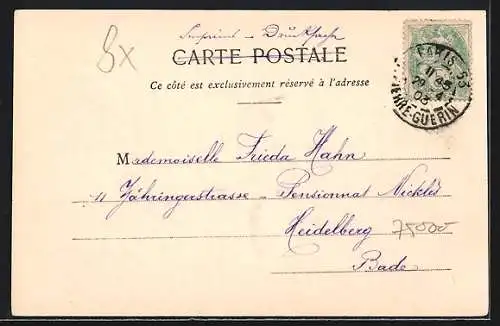 Imprimé — Drucksache
CARTE POSTALE
Ce côté est exclusivement réservé à l'adresse
PARIS 53
03
PIERRE-GUERIN
Mademoiselle Frieda Hahn
11 Zähringerstrasse – Pensionnat Nickles
Heidelberg
75000
Bade